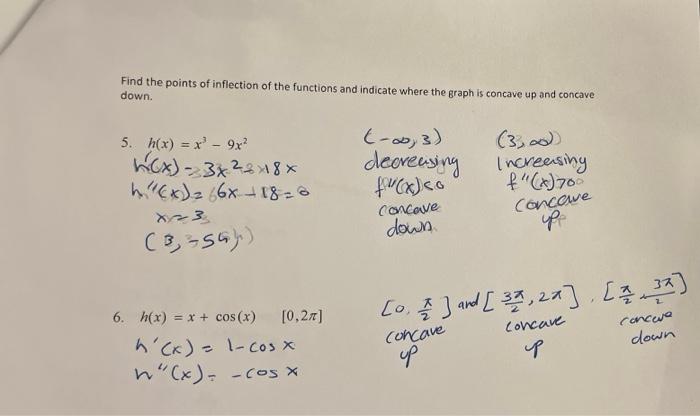 Find the points of inflection of the functions and indicate where the graph is concave up and concave
down.
5. h(x) = x³ − 9x²
h'(x) = 3x² − 18x
h"(x) = 6x − 18 = 0
x = 3
(3, −54)
(−∞, 3)
decreasing
f"(x)<0
concave
down
(3, ∞)
Increasing
f"(x)>0
concave
up
6. h(x) = x + cos(x) [0,2π]
h'(x) = 1−cos x
h"(x) = −cos x
[0, π/2] and [3π/2, 2π], [π/2, 3π/2]
concave
up
concave
up
concave
down